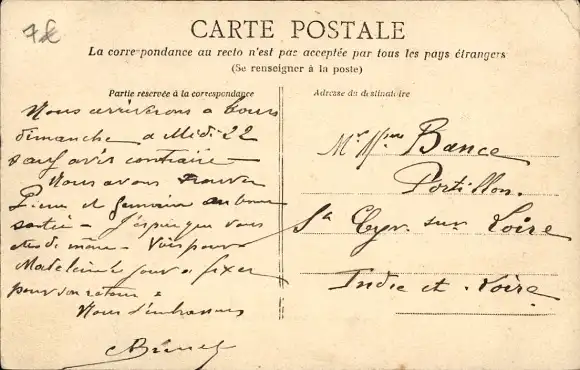 7€
CARTE POSTALE
La correspondance au recto n'est pas acceptée par tous les pays étrangers
(Se renseigner à la poste)
Partie reservée à la correspondance
Adresse du destinataire
Nous arriverons a Tours
dimanche a Midi 22
sauf avis contraire —
Nous avons trouver
Pierre et Germain en bonne
santé — J'espère que vous
etes de même —
Madeleine jour a fixer
pour son retour
Nous t'embrassons
Mr. Mme Bance
Portillon.
St Cyr. sur Loire
Indre et Loire